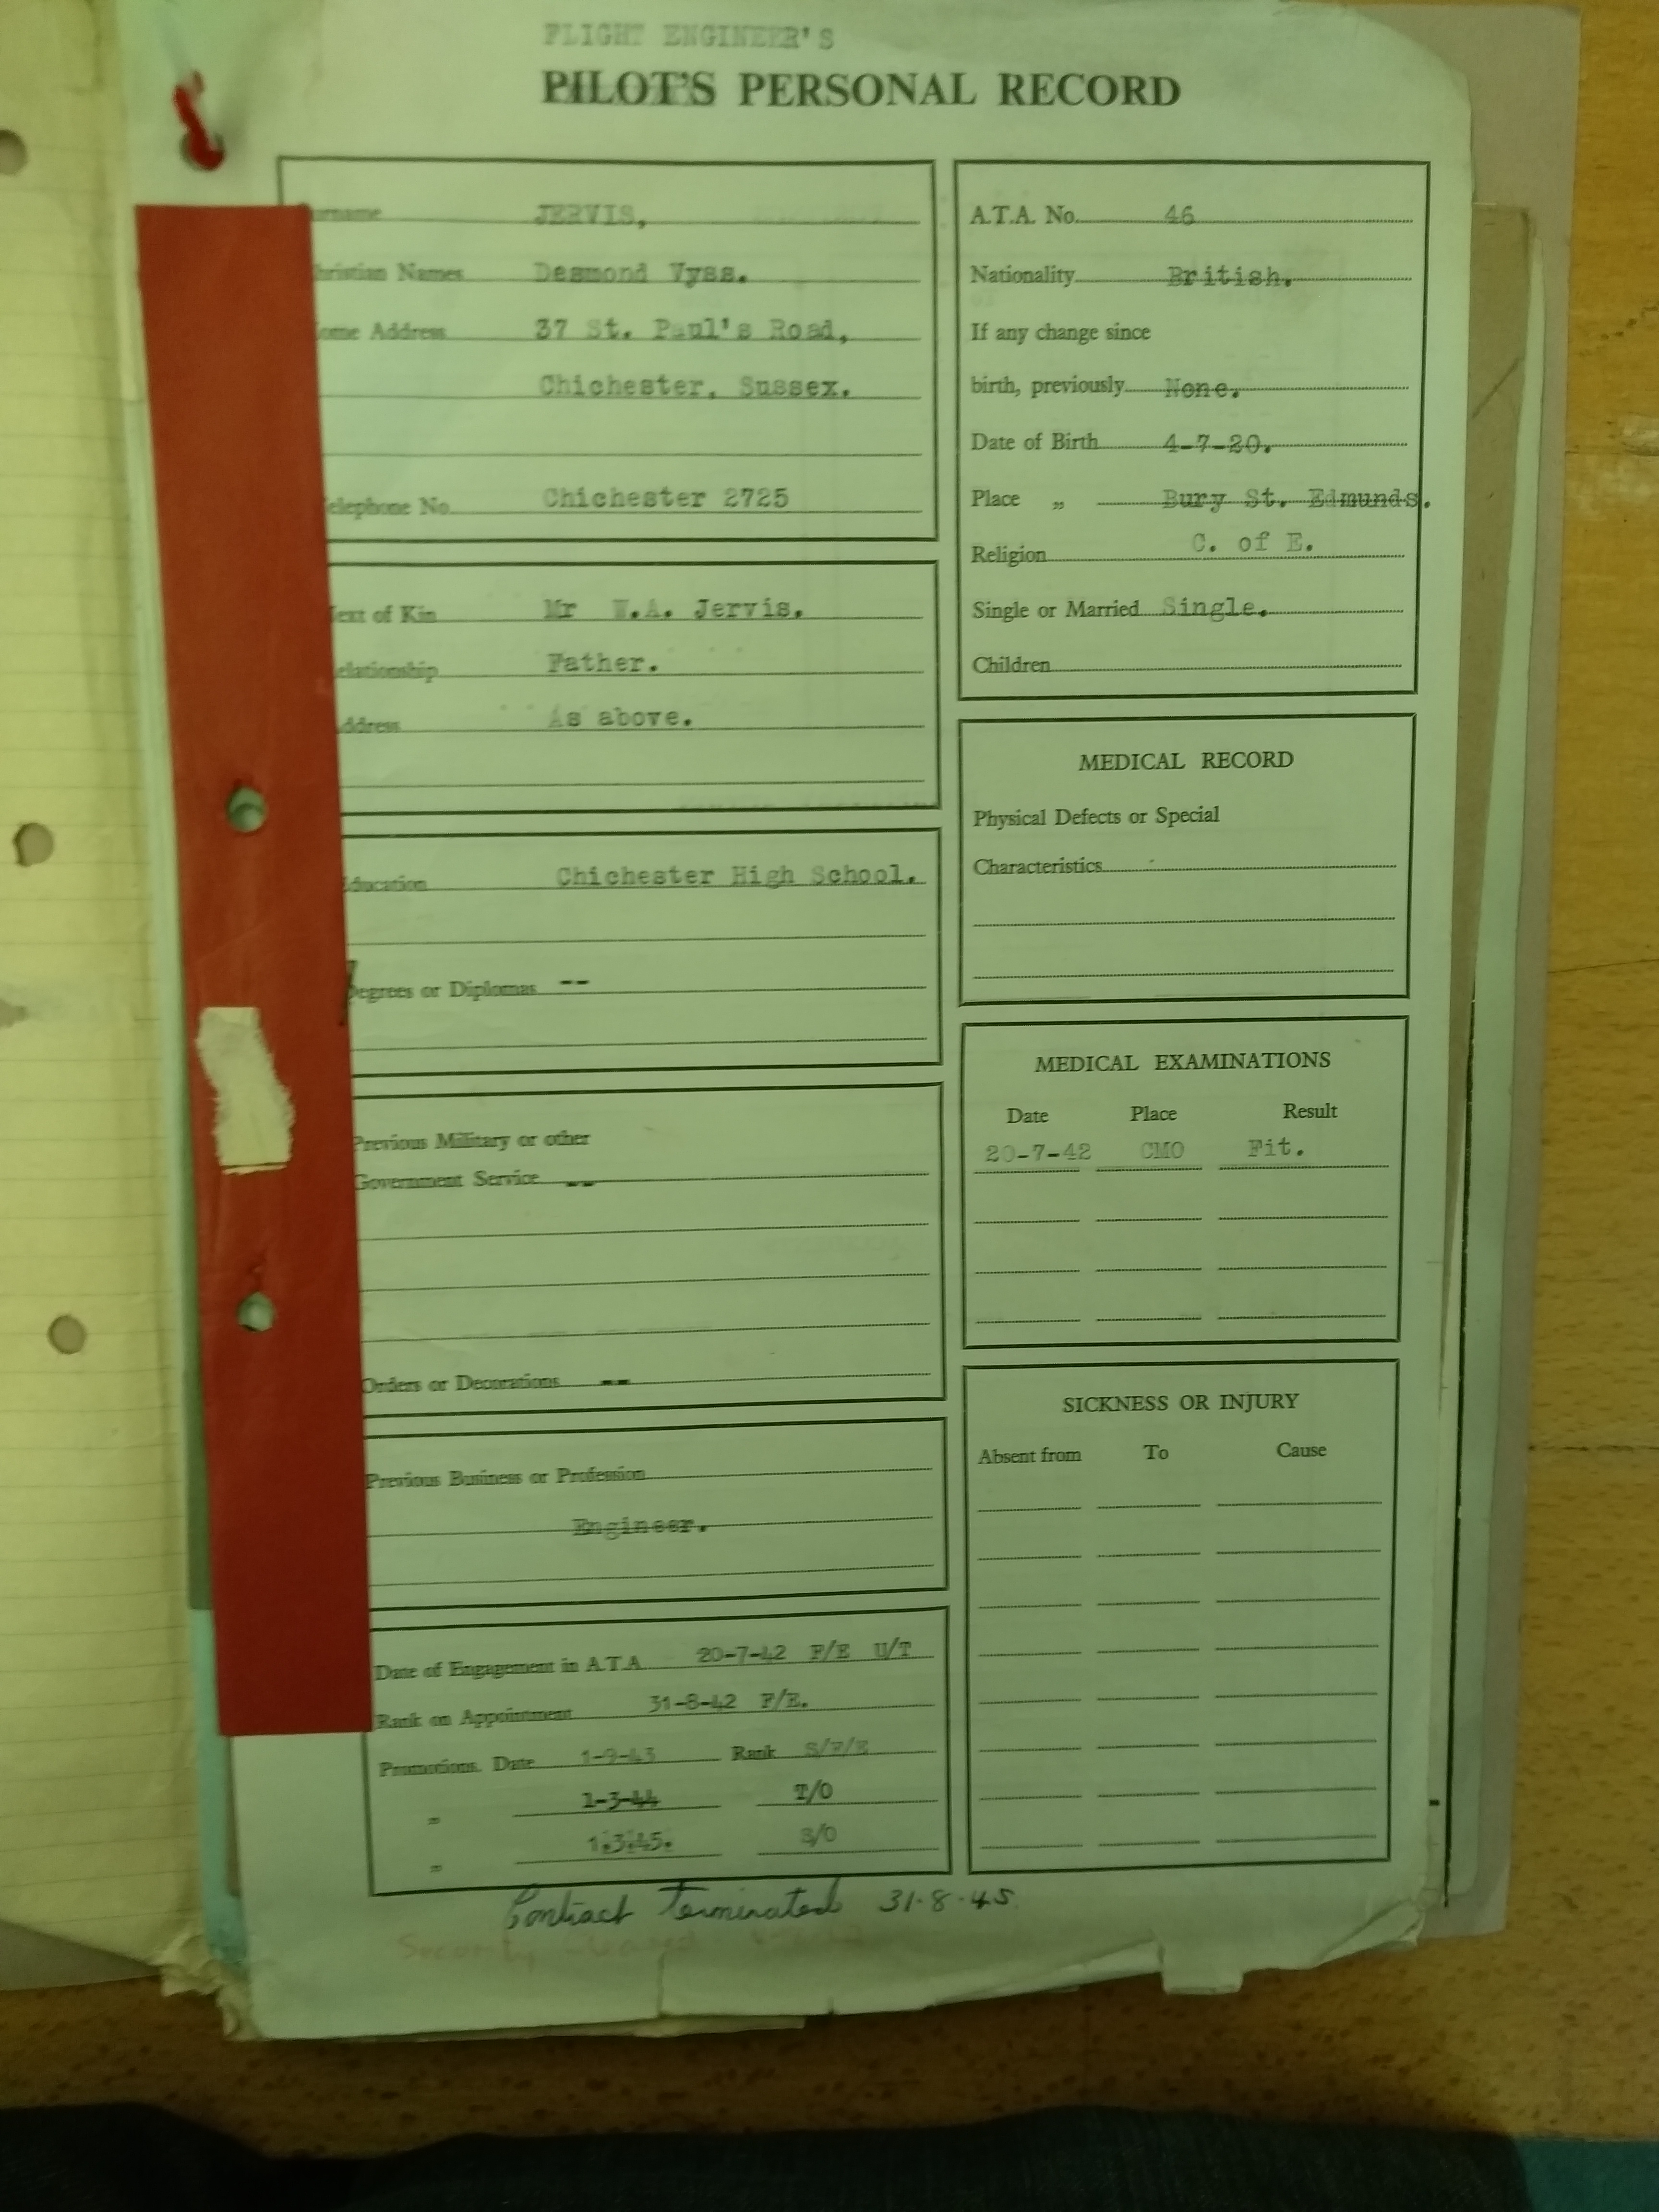 FLIGHT ENGINEER'S
PILOT'S PERSONAL RECORD
urname JERVIS,
hristian Names Desmond Vyss.
ome Address 37 St. Paul's Road,
Chichester, Sussex.
elephone No. Chichester 2725
ext of Kin Mr W.A. Jervis.
elationship Father.
ddress As above.
ducation Chichester High School.
egrees or Diplomas --
Previous Military or other
Government Service --
Orders or Decorations --
Previous Business or Profession
Engineer.
Date of Engagement in A.T.A. 20-7-42 F/E U/T
Rank on Appointment 31-8-42 F/E.
Promotions. Date 1-9-43 Rank S/F/E
" 1-3-44 T/O
" 1.3.45. S/O
Contract Terminated 31.8.45.
Security
A.T.A. No. 46
Nationality British.
If any change since
birth, previously None.
Date of Birth 4-7-20.
Place " Bury St. Edmunds.
Religion C. of E.
Single or Married Single.
Children
MEDICAL RECORD
Physical Defects or Special
Characteristics
MEDICAL EXAMINATIONS
Date Place Result
20-7-42 CMO Fit.
SICKNESS OR INJURY
Absent from To Cause